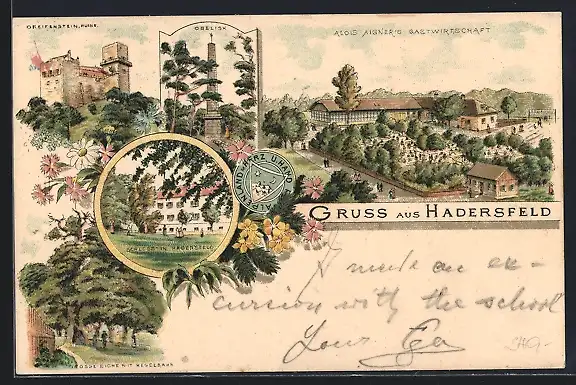 GREIFENSTEIN, RUINE.
OBELISK
ALOIS AIGNER'S GASTWIRTSCHAFT
GRUSS AUS HADERSFELD
SCHLOSS IN HADERSFELD
GROSSE EICHE MIT KEGELBAHN
I made an ex-
cursion with the school
Your